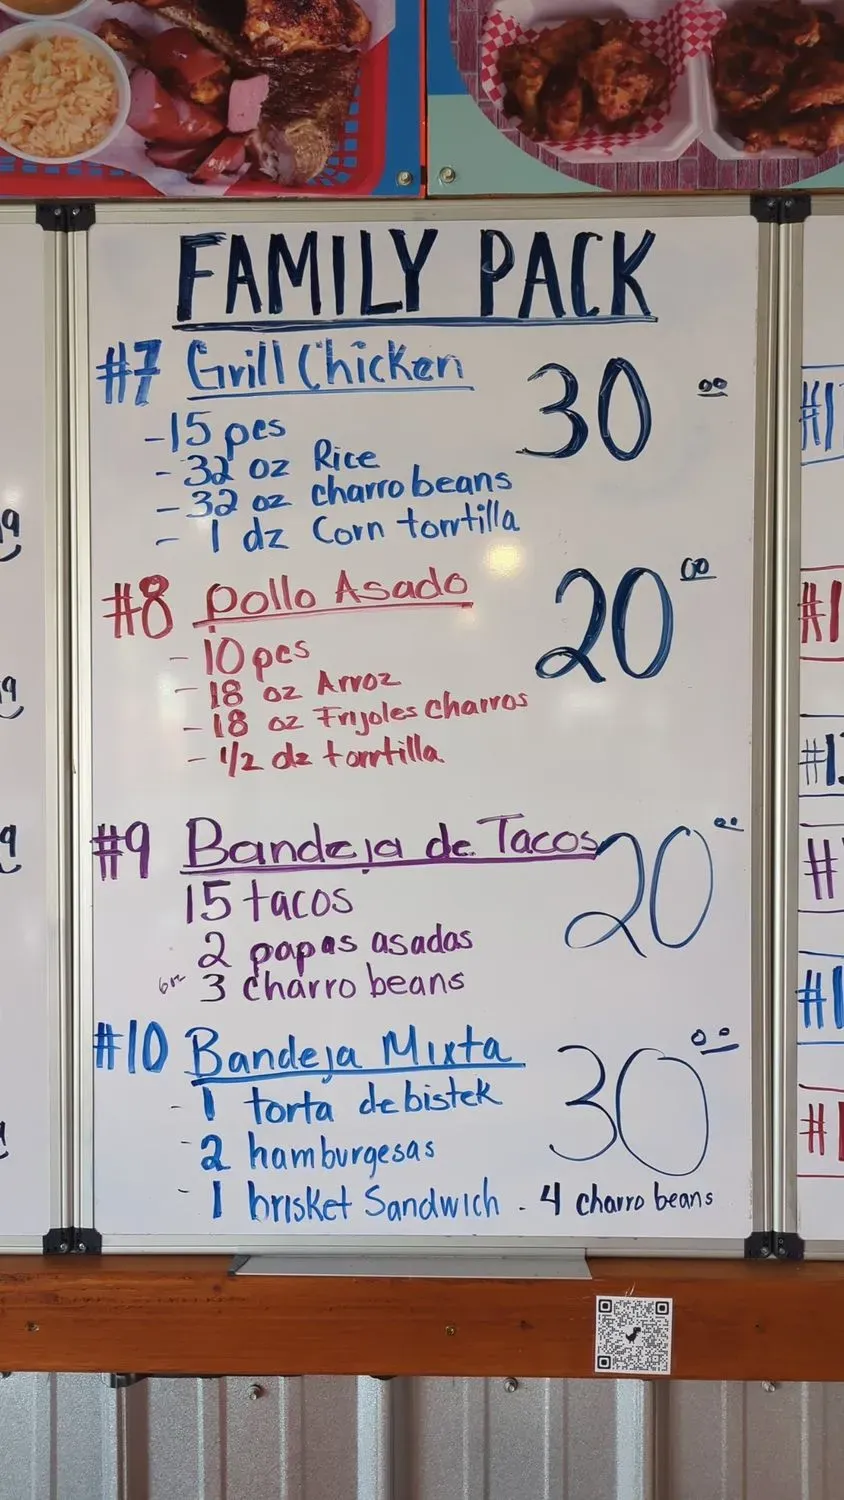 FAMILY PACK
#7 Grill Chicken 30 00
- 15 pcs
- 32 oz Rice
- 32 oz charro beans
- 1 dz Corn torrtilla
#8 pollo Asado 20 00
- 10 pcs
- 18 oz Arroz
- 18 oz Frijoles charros
- 1/2 dz torrtilla
#9 Bandeja de Tacos 20 00
15 tacos
2 papas asadas
3 charro beans
#10 Bandeja Mixta 30 00
- 1 torta de bistek
- 2 hamburgesas
- 1 brisket Sandwich - 4 charro beans